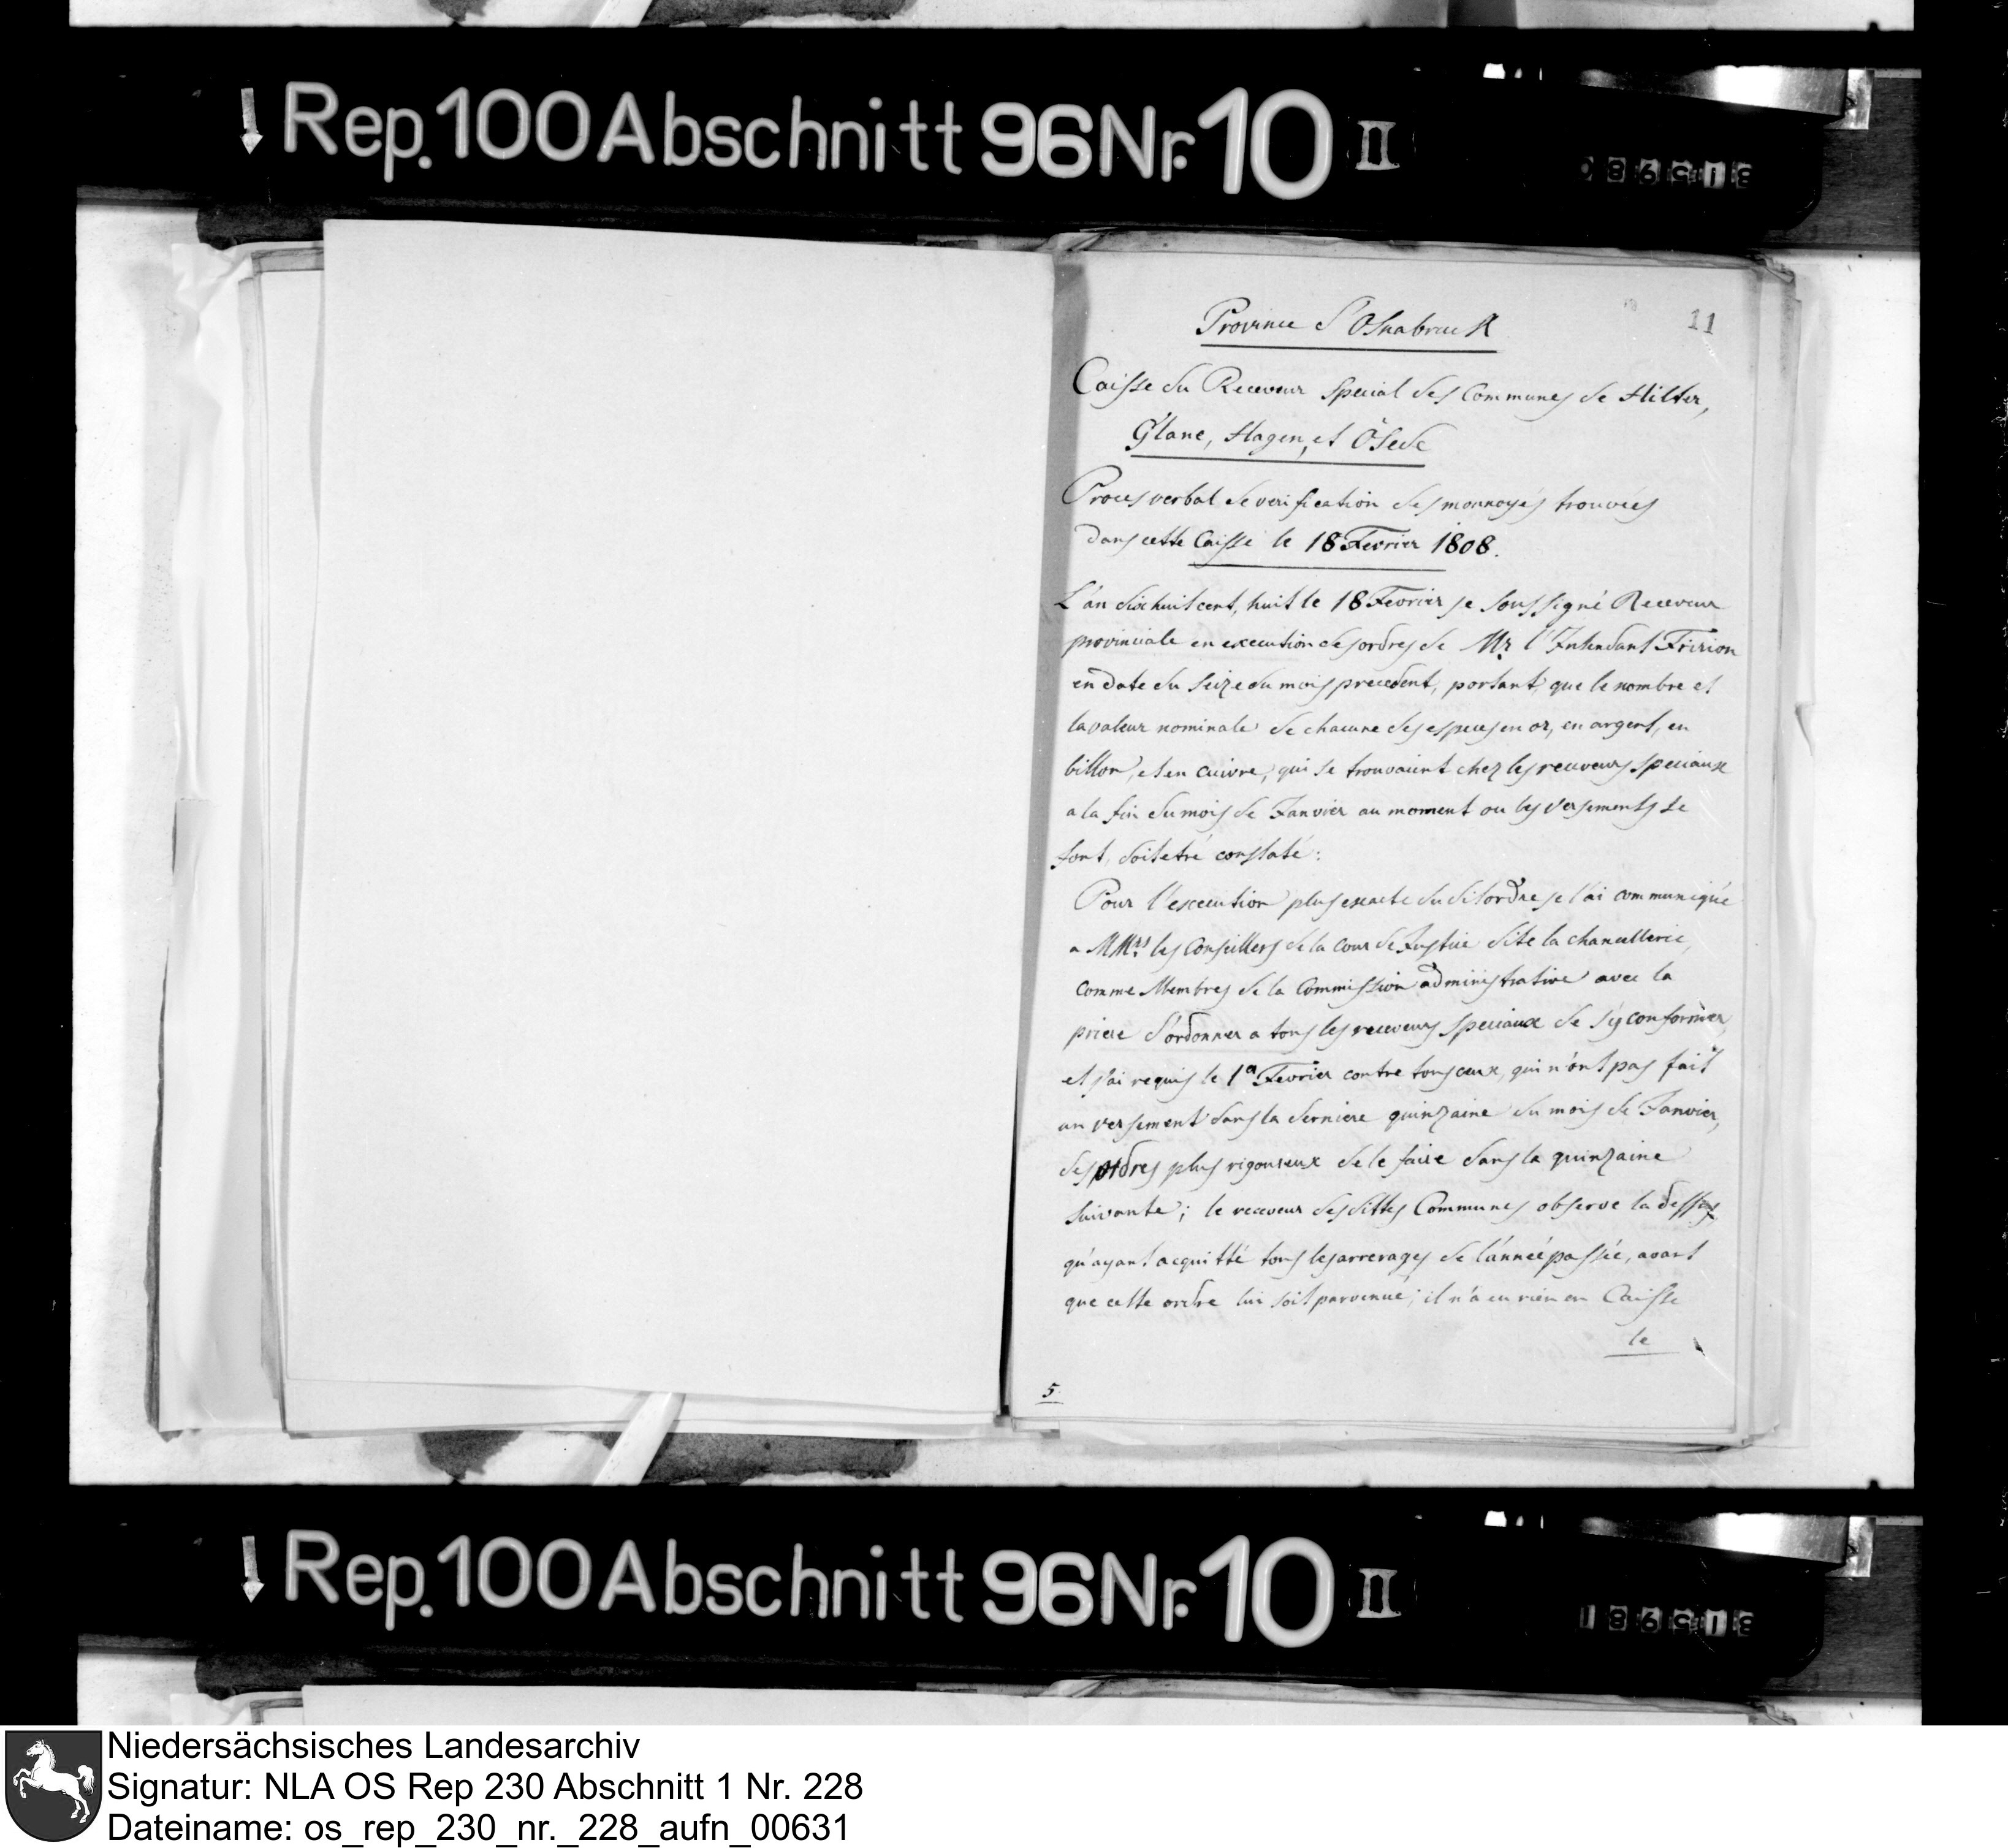 Rep. 100 Abschnitt 96 Nr. 10 II
11
Province d'Osnabruck
Caisse du Receveur special des Communes de Hilter,
Glane, Hagen, et Ösede
Proces verbal de verification des monnoyés trouvées
dans cette Caisse le 18 Fevrier 1808.
L'an dixhuitcent, huit le 18 Fevrier je soussigné Receveur
provinciale en execution des ordres de Mr l'Intendant Fririon
en date du seize du mois precedent, portant, que le nombre et
la valeur nominale de chacune des especes en or, en argent, en
billon, et en cuivre, qui se trouvaient chez les receveurs speciaux
a la fin du mois de Janvier au moment ou les versements se
font, doit etre constaté:
Pour l'execution plus exacte du dit ordre je l'ai communiqué
a MMrs les Conseillers de la Cour de Justice dite la chancellerie,
comme Membres de la Commission administrative avec la
priere d'ordonner a tous les receveurs speciaux de s'y conformer,
et j'ai requis le 1er Fevrier contre tous ceux, qui n'ont pas fait
un versement dans la derniere quinzaine du mois de Janvier,
des ordres plus rigoureux de le faire dans la quinzaine
suivante; le receveur des dittes Communes observe la dessus
qu'ayant acquitté tous les arrerages de l'année passée, avant
que cette ordre lui soit parvenue; il n'a eu rien en Caisse
le
5
Rep. 100 Abschnitt 96 Nr. 10 II
Niedersächsisches Landesarchiv
Signatur: NLA OS Rep 230 Abschnitt 1 Nr. 228
Dateiname: os_rep_230_nr._228_aufn_00631